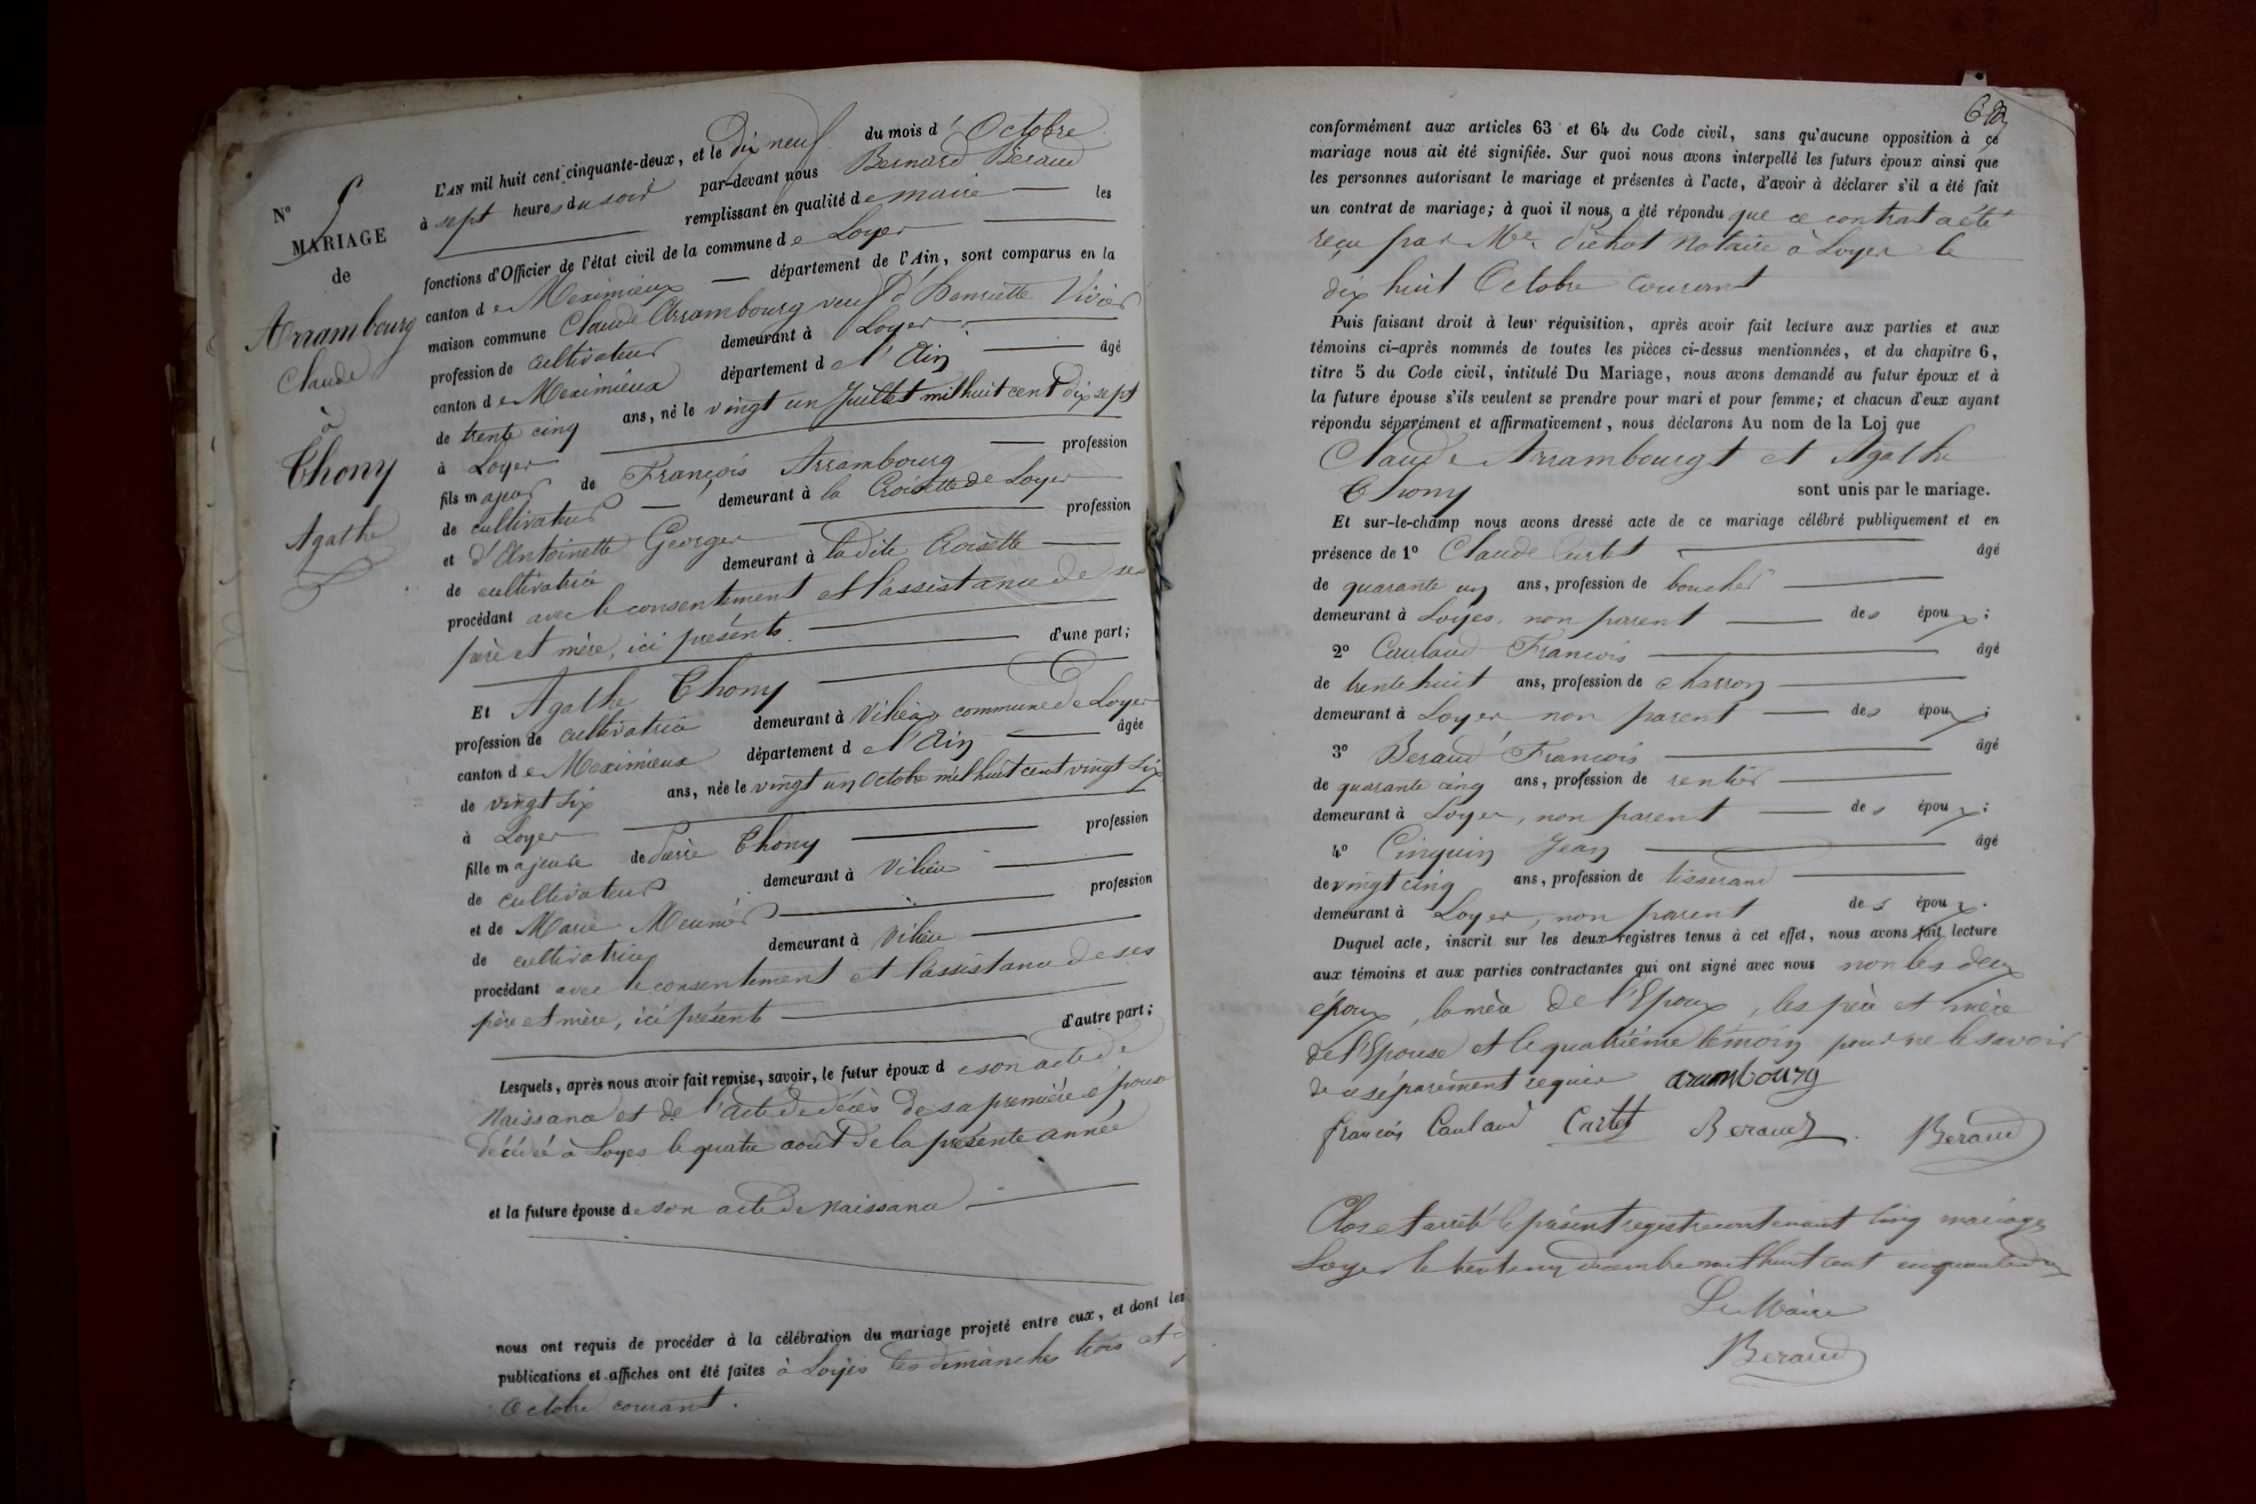 N° 5
MARIAGE
de
Arrambourg
Claude
à
Thony
Agathe
L'AN mil huit cent cinquante-deux, et le Dix neuf du mois d' Octobre
à sept heures du soir par-devant nous Bernard Beraud
remplissant en qualité de maire les
fonctions d'Officier de l'état civil de la commune de Loyes
canton de Meximieux département de l'Ain, sont comparus en la
maison commune Claude Arrambourg veuf d'Henriette Vivier
profession de cultivateur demeurant à Loyes
canton de Meximieux département de l'Ain âgé
de trente cinq ans, né le vingt un Juillet mil huit cent dix sept
à Loyes
fils majeur de François Arrambourg profession
de cultivateur demeurant à la Croisette de Loyes
et d'Antoinette Georges profession
de cultivatrice demeurant à ladite Croisette
procédant avec le consentement et l'assistance de ses
père et mère, ici présents. d'une part;
Et Agathe Thony
profession de cultivatrice demeurant à Vilieu, commune de Loyes
canton de Meximieux département de l'Ain âgée
de vingt six ans, née le vingt un Octobre mil huit cent vingt six
à Loyes
fille majeure de Pierre Thony profession
de cultivateur demeurant à Vilieu
et de Marie Meunier profession
de cultivatrice demeurant à Vilieu
procédant avec le consentement et l'assistance de ses
père et mère, ici présents d'autre part;
Lesquels, après nous avoir fait remise, savoir, le futur époux de son acte de
naissance et de l'acte de décès de sa première épouse
décédée à Loyes le quatre août de la présente année
et la future épouse de son acte de naissance
nous ont requis de procéder à la célébration du mariage projeté entre eux, et dont les
publications et affiches ont été faites à Loyes les dimanches trois et
Octobre courant.
conformément aux articles 63 et 64 du Code civil, sans qu'aucune opposition à ce
mariage nous ait été signifiée. Sur quoi nous avons interpellé les futurs époux ainsi que
les personnes autorisant le mariage et présentes à l'acte, d'avoir à déclarer s'il a été fait
un contrat de mariage; à quoi il nous a été répondu que ce contrat a été
reçu par Me notaire à Loyes le
dix huit Octobre courant
Puis faisant droit à leur réquisition, après avoir fait lecture aux parties et aux
témoins ci-après nommés de toutes les pièces ci-dessus mentionnées, et du chapitre 6,
titre 5 du Code civil, intitulé Du Mariage, nous avons demandé au futur époux et à
la future épouse s'ils veulent se prendre pour mari et pour femme; et chacun d'eux ayant
répondu séparément et affirmativement, nous déclarons Au nom de la Loi que
Claude Arrambourgt et Agathe
Thony sont unis par le mariage.
Et sur-le-champ nous avons dressé acte de ce mariage célébré publiquement et en
présence de 1° Claude Curtet âgé
de quarante un ans, profession de boucher
demeurant à Loyes, non parent des époux;
2° Caulaud François âgé
de trente huit ans, profession de charron
demeurant à Loyes non parent des époux;
3° Beraud François âgé
de quarante cinq ans, profession de rentier
demeurant à Loyes, non parent des époux;
4° Cinquin Jean âgé
de vingt cinq ans, profession de tisserand
demeurant à Loyes, non parent des époux.
Duquel acte, inscrit sur les deux registres tenus à cet effet, nous avons fait lecture
aux témoins et aux parties contractantes qui ont signé avec nous non les deux
époux, la mère de l'Epoux, les père et mère
de l'Epouse et le quatrième témoin pour ne le savoir
de ce séparément requis arambourg
françois Caulaud Curtet Beraud Beraud
Clos et arrêté le présent registre contenant cinq mariages
Loyes le trente un décembre mil huit cent cinquante deux
Le Maire
Beraud